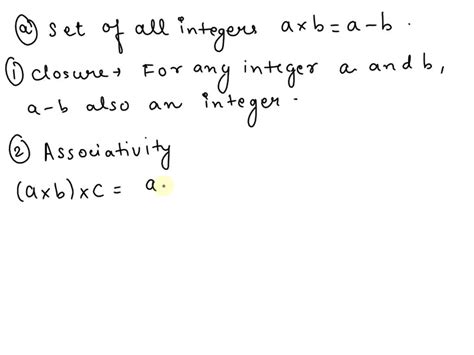 ⓐ Set of all integers a×b = a-b .
① Closure → For any integer a and b,
a-b also an integer .
② Associativity
(a×b)×c = a-